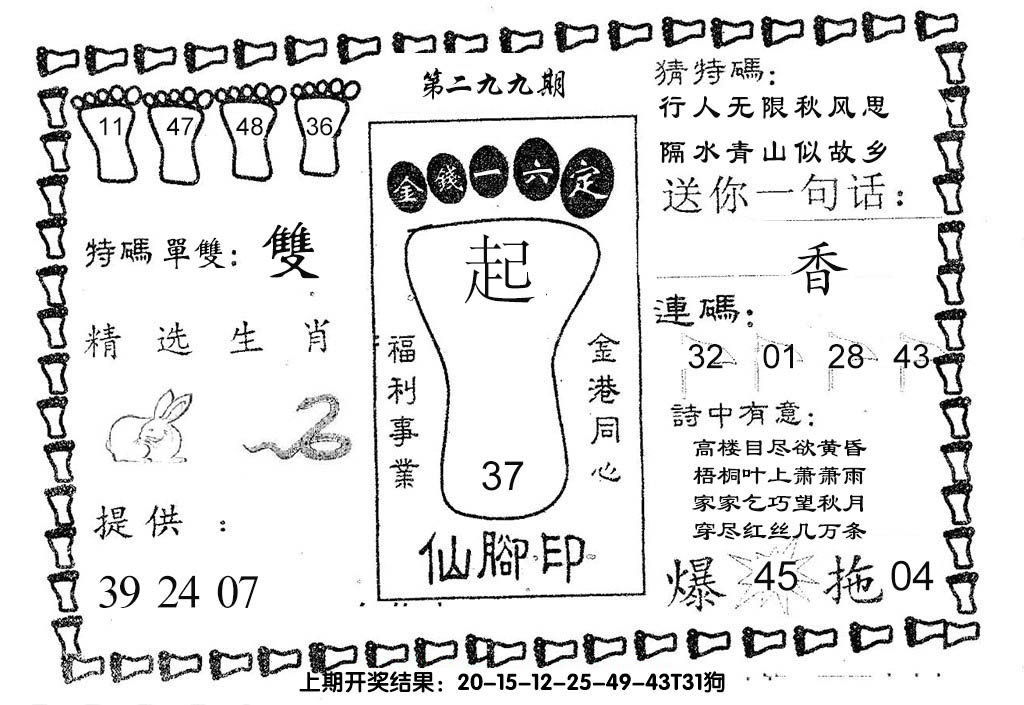 第二九九期
11 47 48 36
特碼單雙：雙
精选生肖
提供：
39 24 07
金錢一六定
起
福利事業
金港同心
37
仙腳印
猜特碼：
行人无限秋风思
隔水青山似故乡
送你一句话：
香
連碼：
32 01 28 43
詩中有意：
高楼目尽欲黄昏
梧桐叶上萧萧雨
家家乞巧望秋月
穿尽红丝几万条
爆 45 拖 04
上期开奖结果：20-15-12-25-49-43T31狗